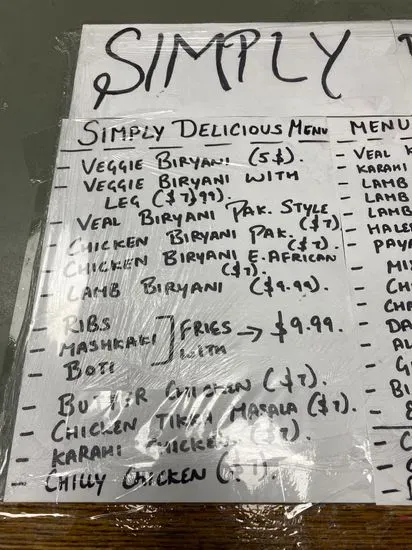 SIMPLY
SIMPLY DELICIOUS MENU
- VEGGIE BIRYANI (5$)
- VEGGIE BIRYANI WITH
LEG ($7.99).
- VEAL BIRYANI PAK. STYLE
($7).
- CHICKEN BIRYANI PAK. ($7).
- CHICKEN BIRYANI E. AFRICAN
($7).
- LAMB BIRYANI ($9.99).
- RIBS
- MASHKAKI ] FRIES WITH → $9.99.
- BOTI
- BUTTER CHICKEN ($7).
- CHICKEN TIKKA MASALA ($7).
- KARAHI CHICKEN ($7).
- CHILLY CHICKEN ($7).
MENU
- VEAL K
KARAHI
- LAMB
- LAMB
- LAMB
- HALEE
- PAYA